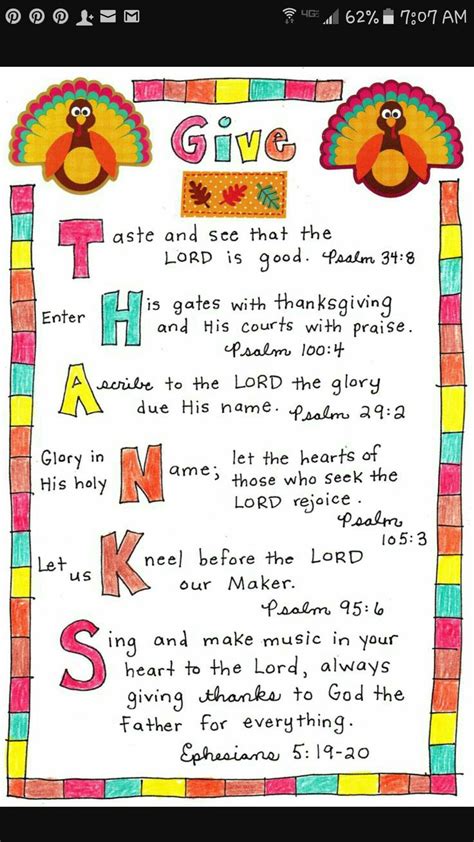 4G 62% 7:07 AM
Give
Taste and see that the
LORD is good. Psalm 34:8
Enter His gates with thanksgiving
and His courts with praise.
Psalm 100:4
Ascribe to the LORD the glory
due His name. Psalm 29:2
Glory in His holy Name; let the hearts of
those who seek the
LORD rejoice.
Psalm
105:3
Let us Kneel before the LORD
our Maker.
Psalm 95:6
Sing and make music in your
heart to the Lord, always
giving thanks to God the
Father for everything.
Ephesians 5:19-20